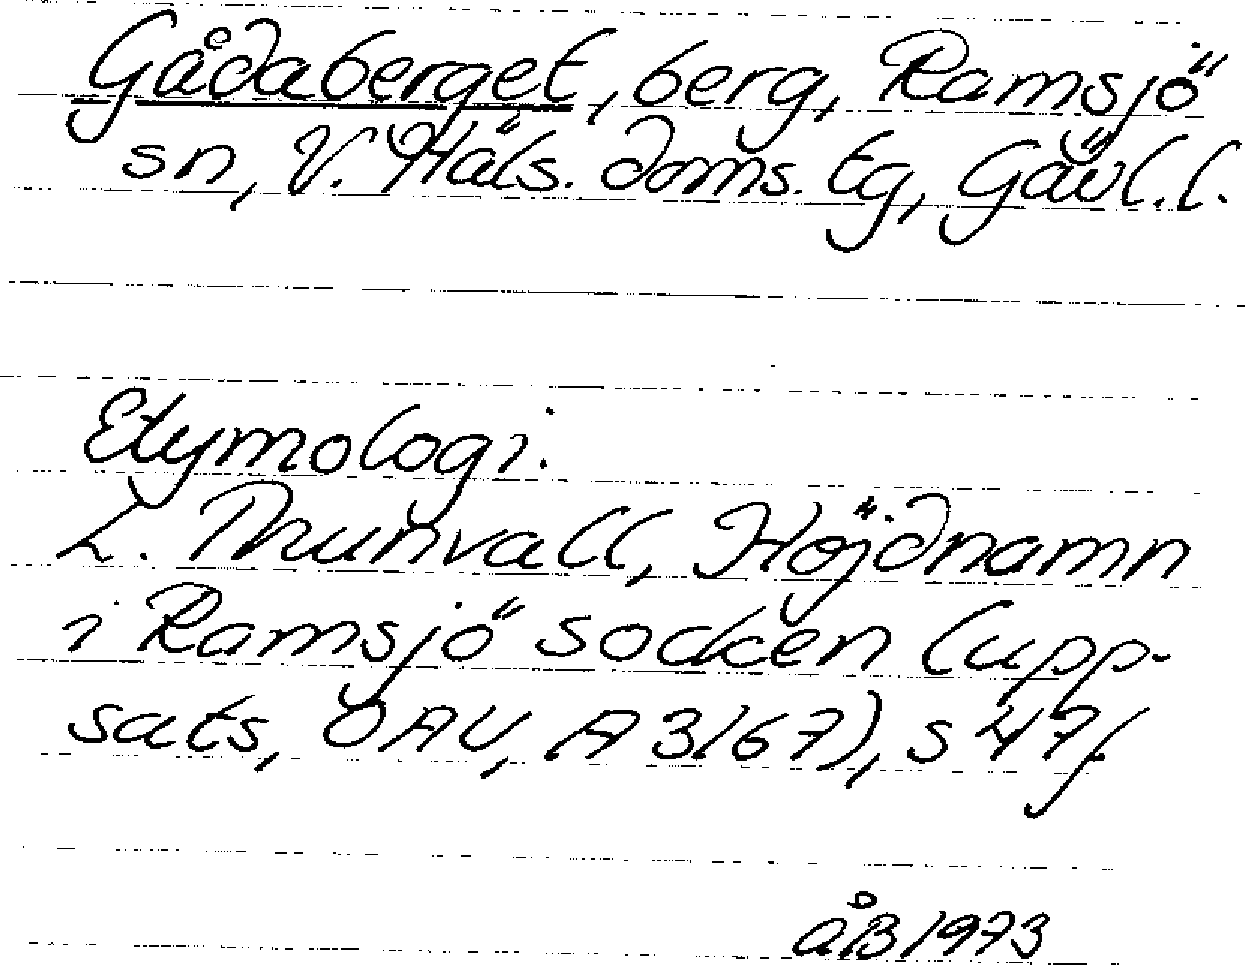 Gådaberget, berg, Ramsjö
sn, V. Häls. doms. tg, Gävl. l.
Etymologi.
L. Thunvall, Höjdnamn
i Ramsjö socken (upp-
sats, OAU, A 3167), s 47f
åB 1973